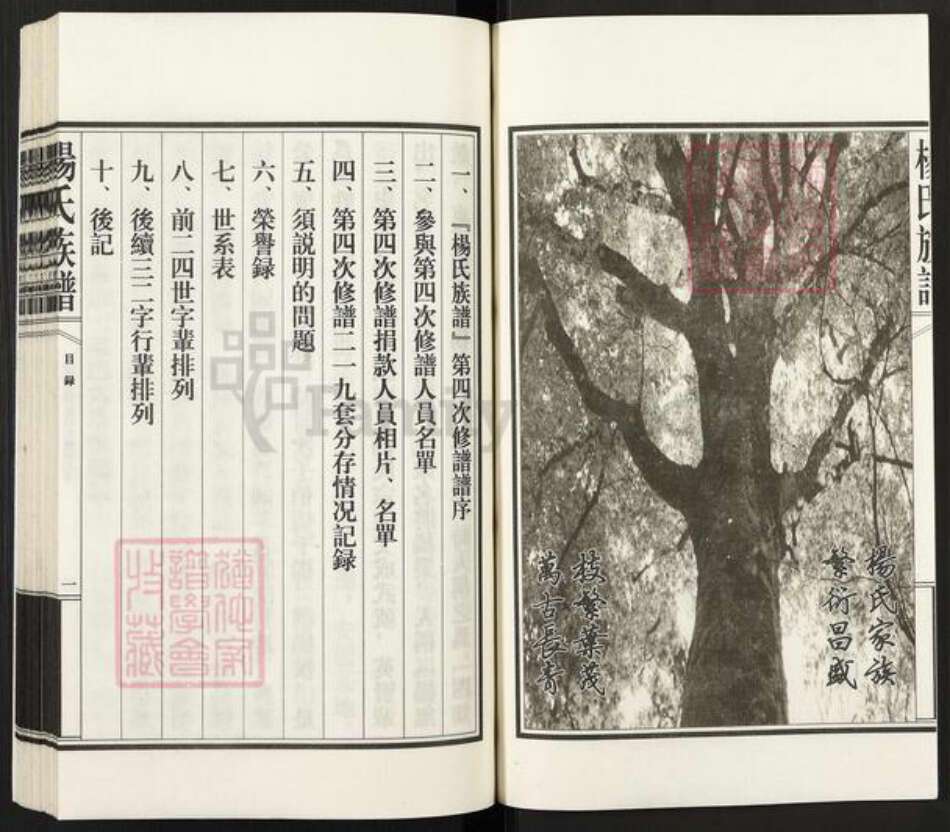 楊氏族譜
楊氏家族
繁衍昌盛
枝繁葉茂
萬古長青
一、『楊氏族譜』第四次修譜譜序
二、參與第四次修譜人員名單
三、第四次修譜捐款人員相片、名單
四、第四次修譜二一九套分存情况記録
五、須説明的問題
六、榮譽録
七、世系表
八、前二四世字輩排列
九、後續三二字行輩排列
十、後記
楊氏族譜
目録
一